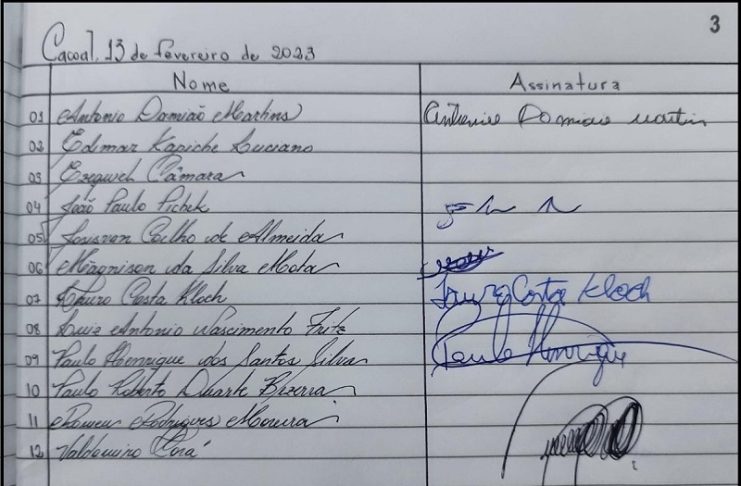 3
Cacoal, 13 de fevereiro de 2023
Nome Assinatura
01 Antonio Damião Martins Antonio Damiao Martin
02 Edimar Kapiche Luciano
03 Ezequiel Câmara
04 João Paulo Pichek
05 Josivan Coelho de Almeida
06 Magnison da Silva Mota
07 Lauro Costa Kloch Lauro Costa Kloch
08 Luiz Antonio Nascimento Fritz
09 Paulo Henrique dos Santos Silva Paulo Henrique
10 Paulo Roberto Duarte Bezerra
11 Romeu Rodrigues Moreira
12 Valdomiro Corá